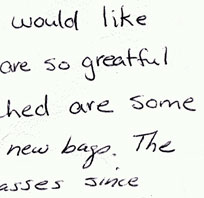 would like
are so greatful
ched are some
new bags. The
asses since